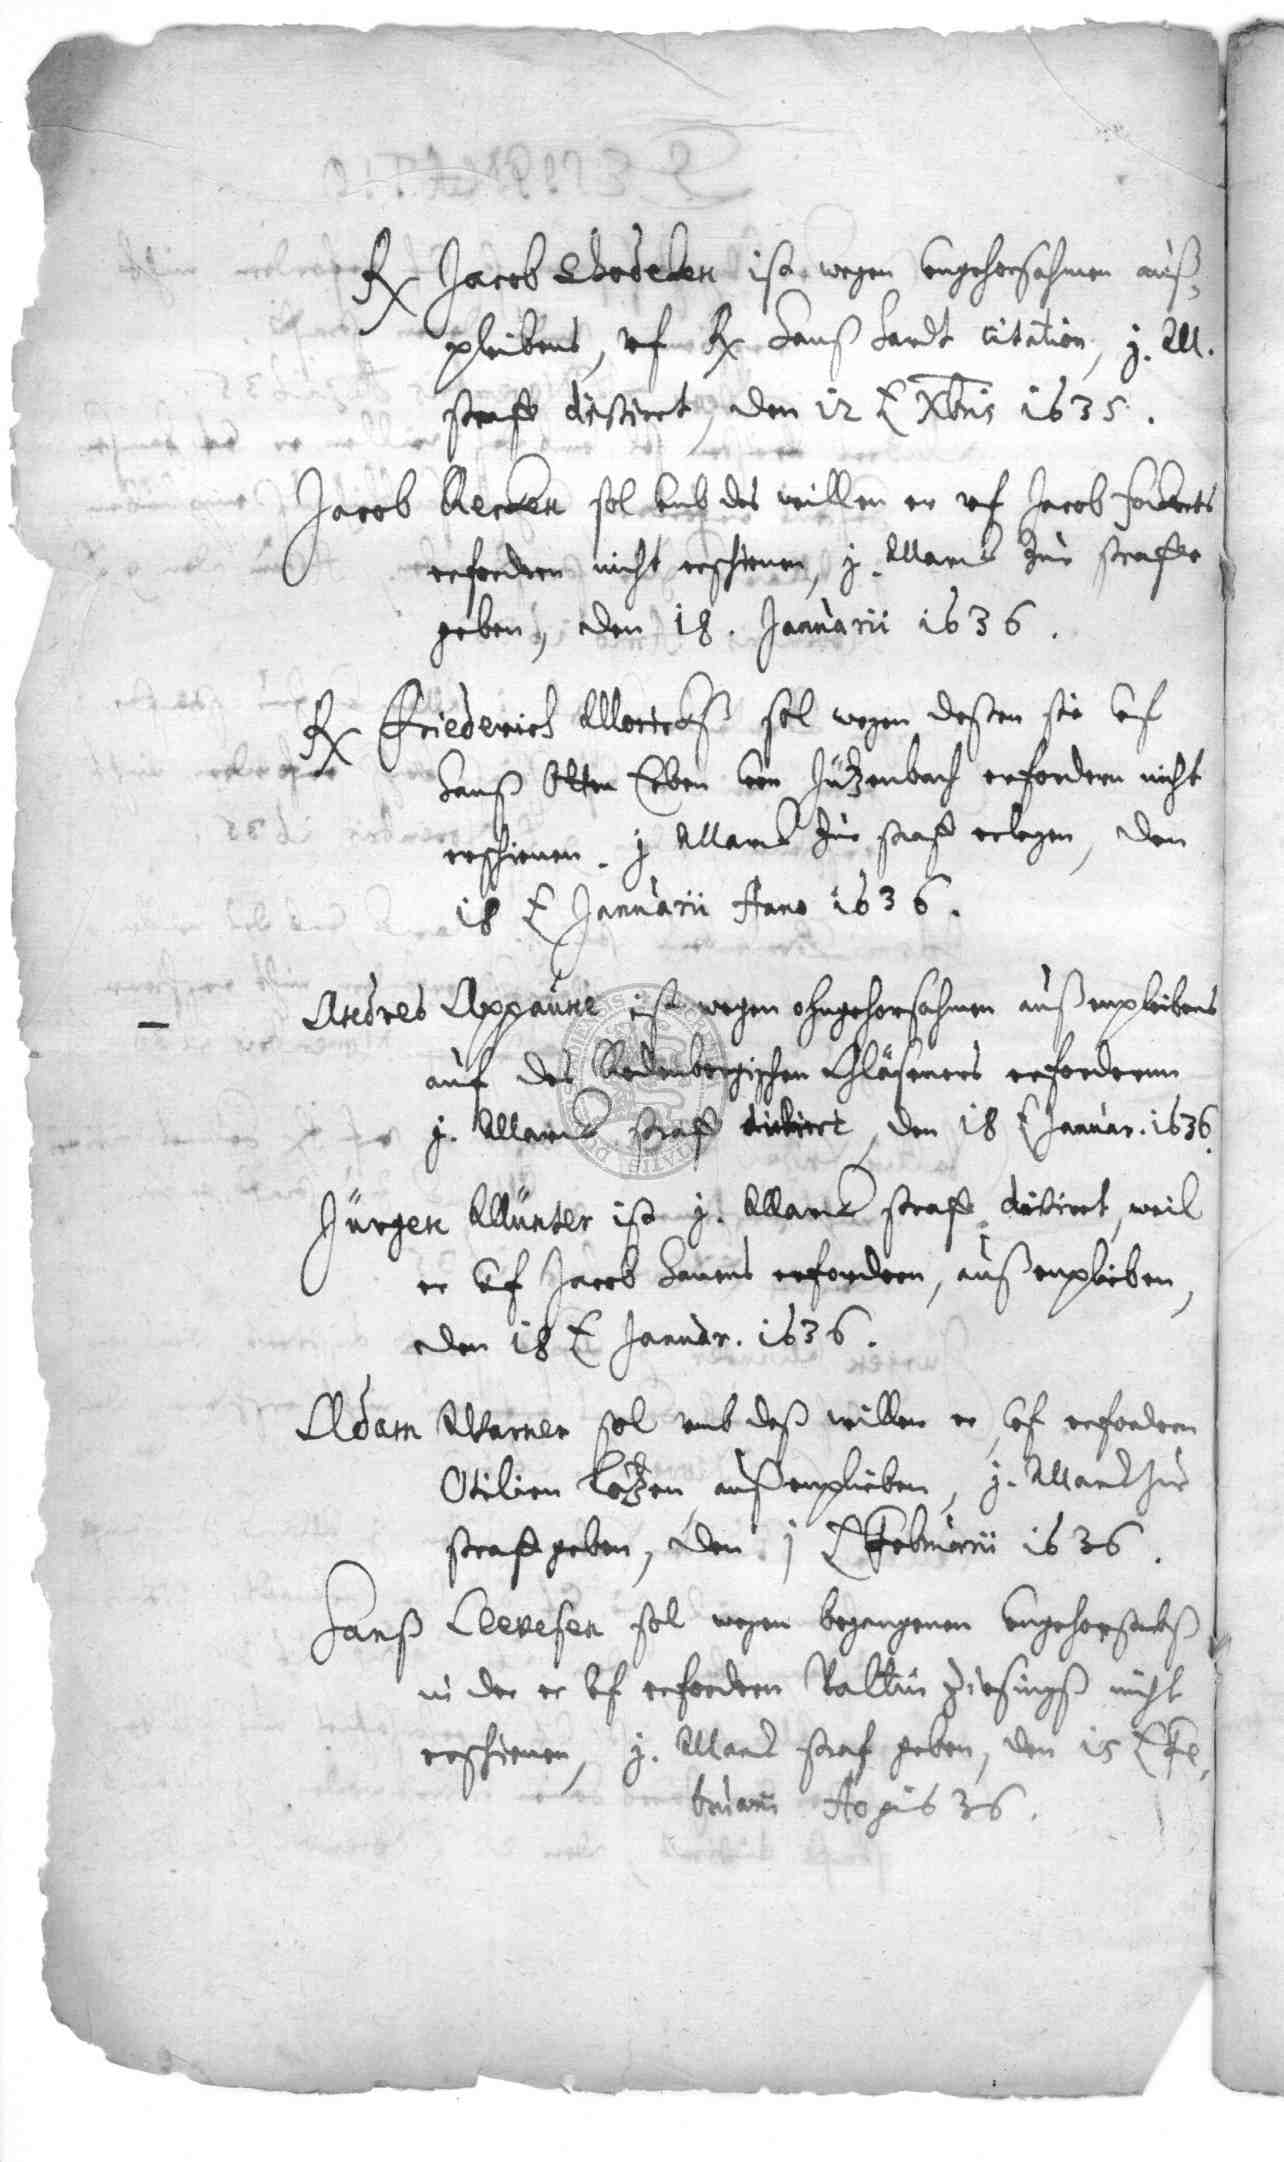 Rx Jacob Rhodeken ist wegen ungehorsahmen auß,
pleibens, uf Rx Hanß Hardt citation, j. M.
straff dictiert, den 12 Xbris 1635.
Jacob Recken sol umb des willen er uf Jacob
erfordern nicht erschienen, j. Marck zur straffe
geben, den 18. Januarii 1636.
Rx Friederich sol wegen dessen sie uf
Hanß Otten Erben von Jützenbach erfordern nicht
erschienen. j Marck zur straff erlegen, den
18 Januarii Anno 1636.
Andres Appauhe ist wegen ohngehorsahmen außenpleibens
auf des Rodenbergischen Gläseners erfordernn
j. Marck straff dictiert, den 18 Januar. 1636.
Jürgen Münter ist j. Marck straff dictiert, weil
er uf Jacob erfordern, außenplieben,
den 18 Januar. 1636.
Adam Warner sol umb deß willen er, uf erfordern
Otilien außenplieben, j. Marck zur
straff geben, den j Februarii 1636.
Hanß sol wegen begangenen ungehorsambß
in der er uf erfordern Valtin nicht
erschienen, j. Marck straf geben, den 15 Fe,
bruarii Ao 36.